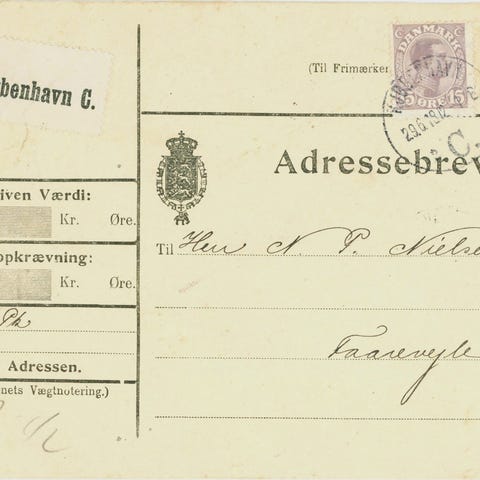 benhavn C.
(Til Frimærker
DANMARK
15 ØRE 15
KJØBENHAVN
29.6.19.12-
C.
Adressebrev
iven Værdi:
Kr. Øre.
opkrævning:
Kr. Øre.
Til Herr N. P. Nielse
Pk
Faarevejle
Adressen.
nets Vægtnotering.)